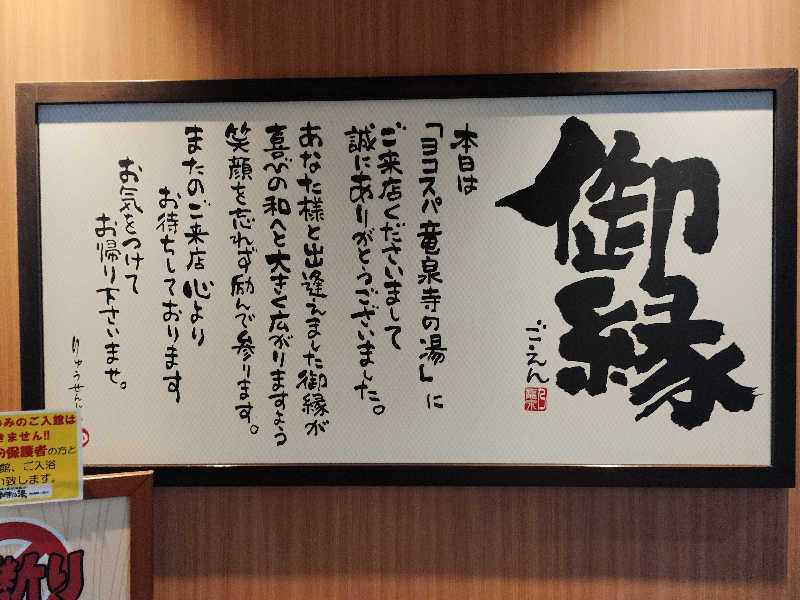 御縁
ごえん
本日は
「ヨコスパ竜泉寺の湯」に
ご来店くださいまして
誠にありがとうございました。
あなた様と出逢えました御縁が
喜びの和へと大きく広がりますよう
笑顔を忘れず励んで参ります。
またのご来店 心より
お待ちしております
お気をつけて
お帰り下さいませ。
りゅうせん
のみのご入館は
きません!!
保護者の方と
館、ご入浴
致します。
断り